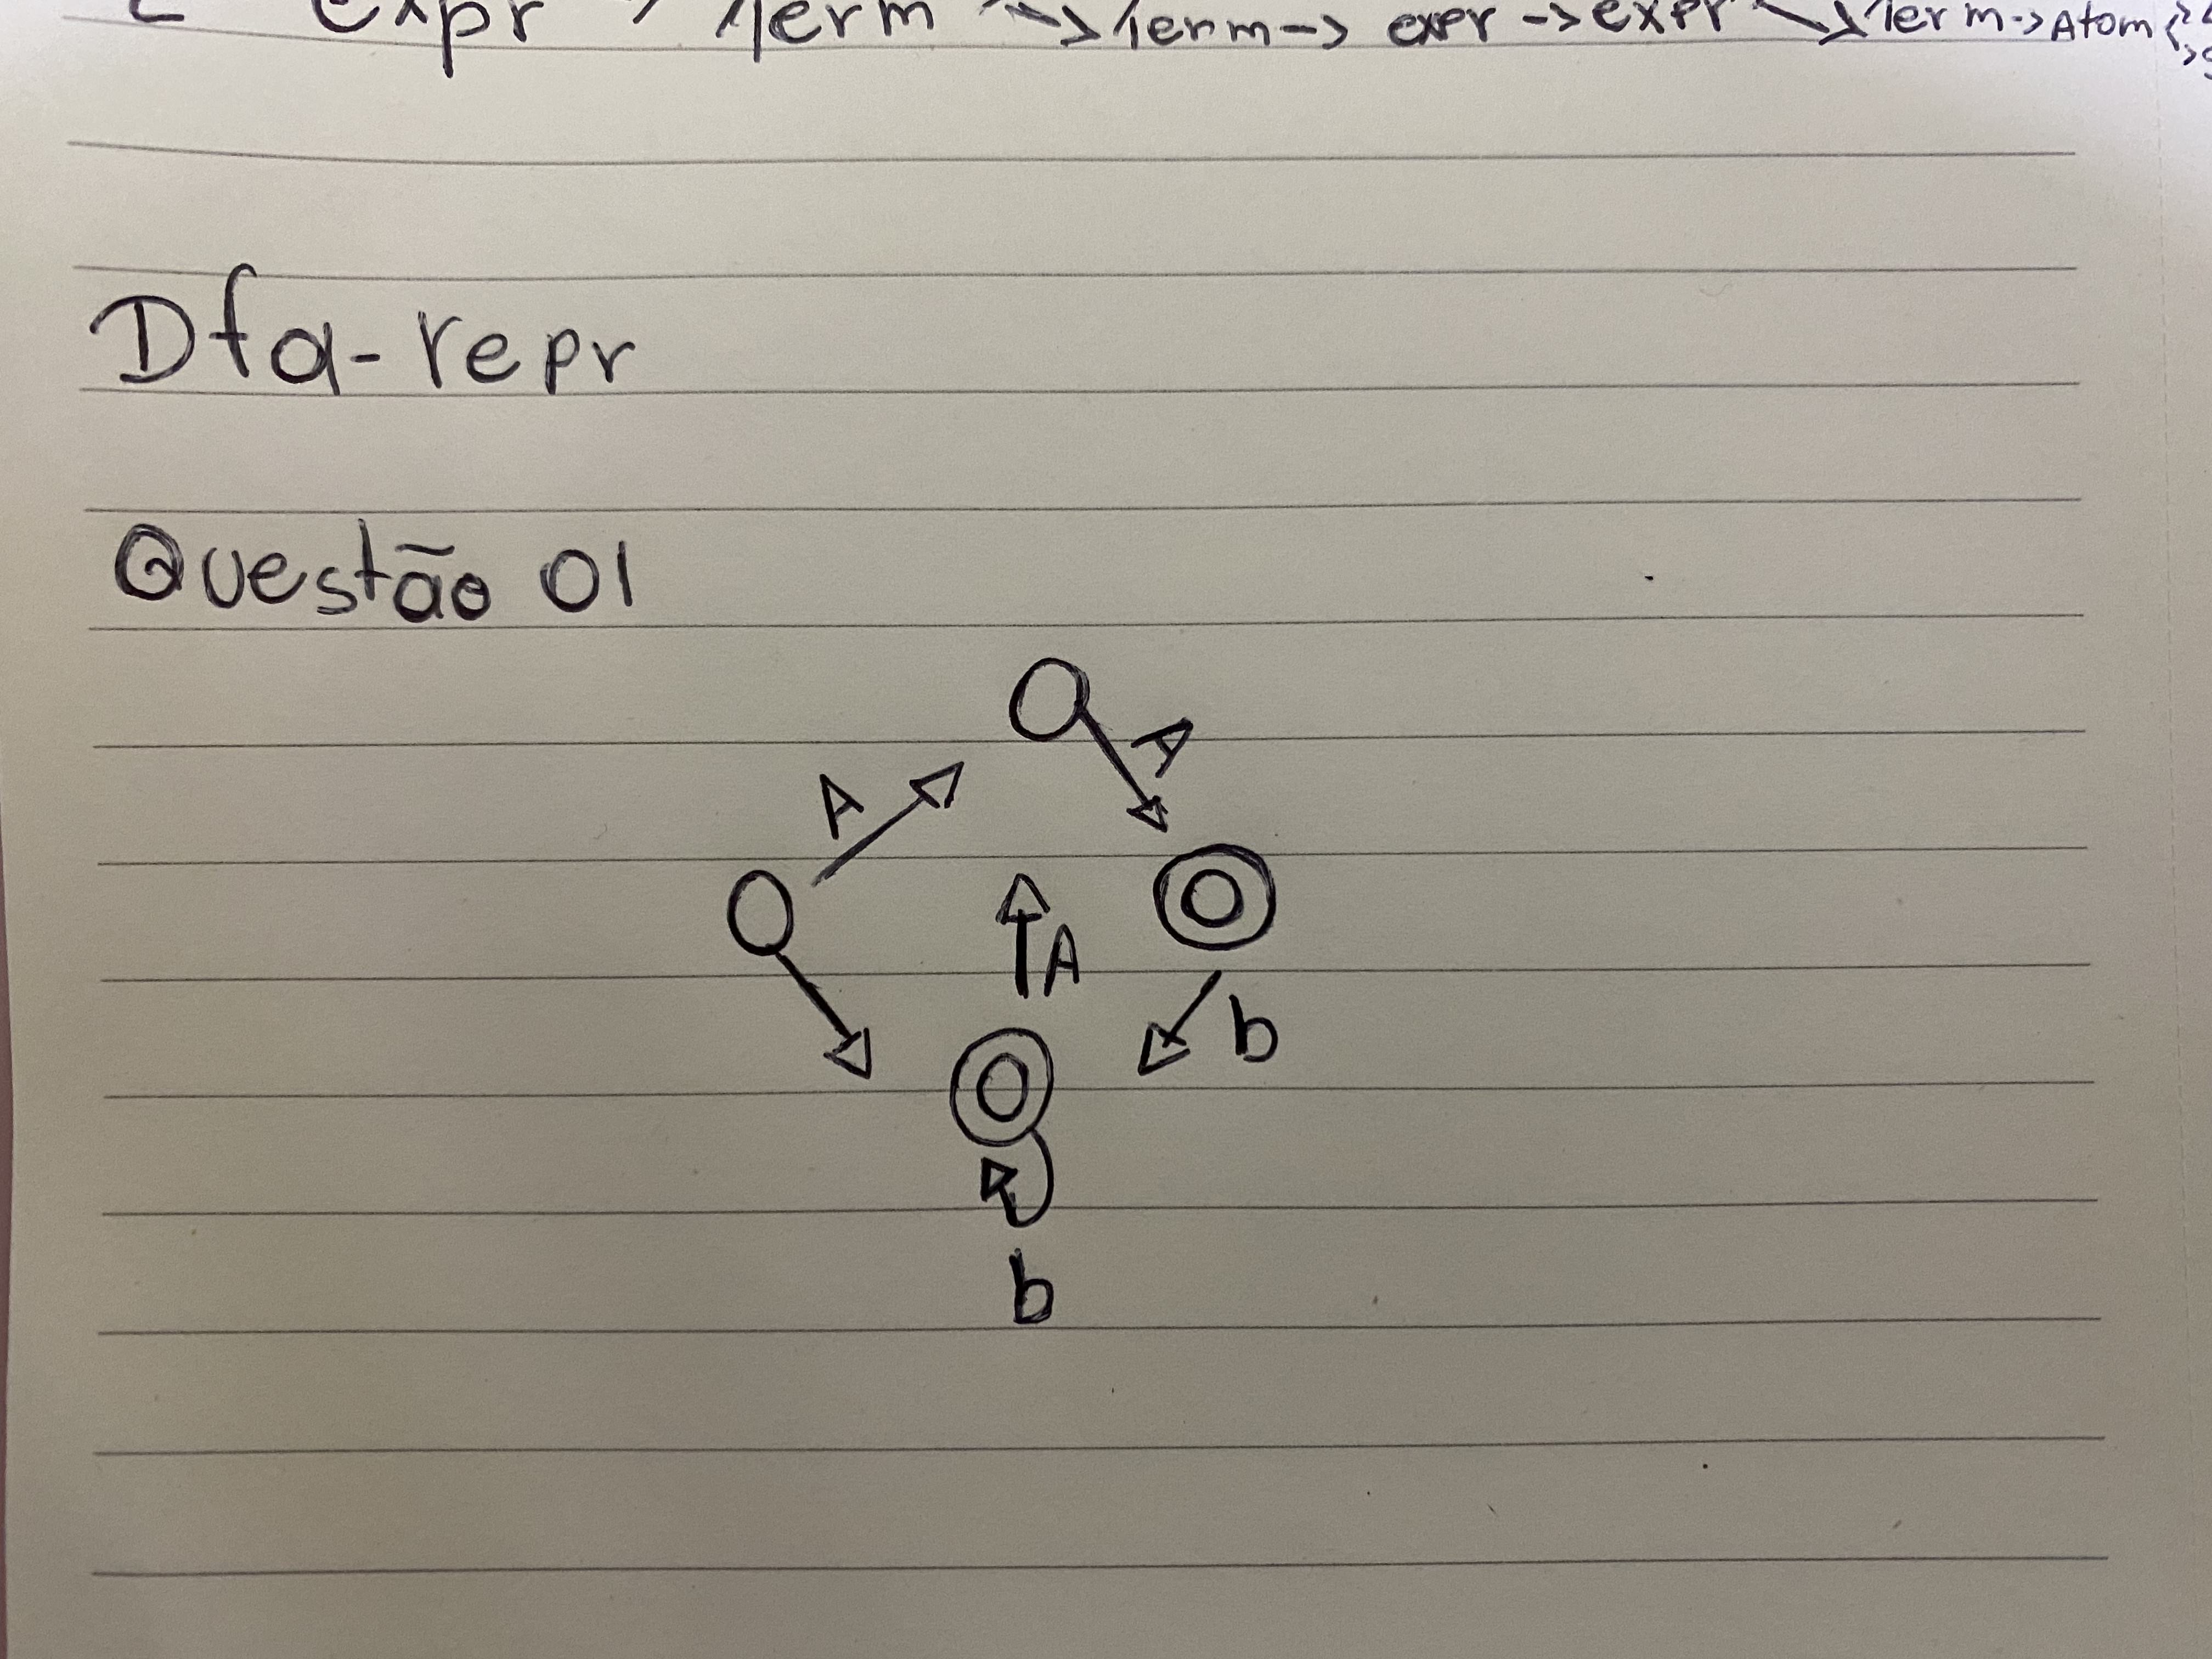 expr Term -> Term -> expr -> expr -> Term -> Atom
Dfa-repr
Questão 01
A
A
A
b
b